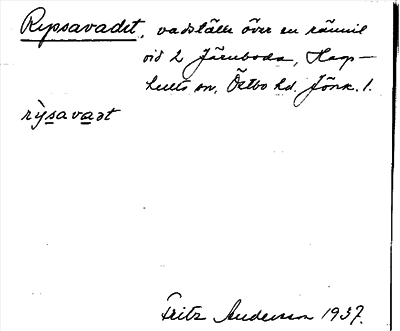 Rypsavadet, vadställe över en rännil
vid L Järnboda, Hag-
hults sn, Östbo hd. Jönk. l.
rỳsavadt
Fritz Anderson 1937.